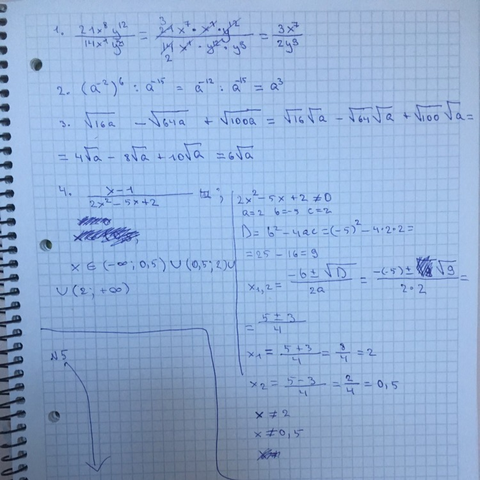 1. 21x⁸y¹² / 14x¹y¹⁵ = 21x⁷·x¹·y¹² / 14x¹·y¹²·y³ = 3x⁷ / 2y³
2. (a⁻²)⁶ : a⁻¹⁵ = a⁻¹² : a⁻¹⁵ = a³
3. √16a - √64a + √100a = √16√a - √64√a + √100√a =
= 4√a - 8√a + 10√a = 6√a
4. x-1 / 2x²-5x+2 ;
x ∈ (-∞; 0,5) ∪ (0,5; 2) ∪
∪ (2; +∞)
2x²-5x+2≠0
a=2 b=-5 c=2
D = b²-4ac = (-5)²-4·2·2 =
= 25-16 = 9
x₁,₂ = -b±√D / 2a = -(-5)±√9 / 2·2 =
= 5±3 / 4
x₁ = 5+3 / 4 = 8/4 = 2
x₂ = 5-3 / 4 = 2/4 = 0,5
x ≠ 2
x ≠ 0,5
№5